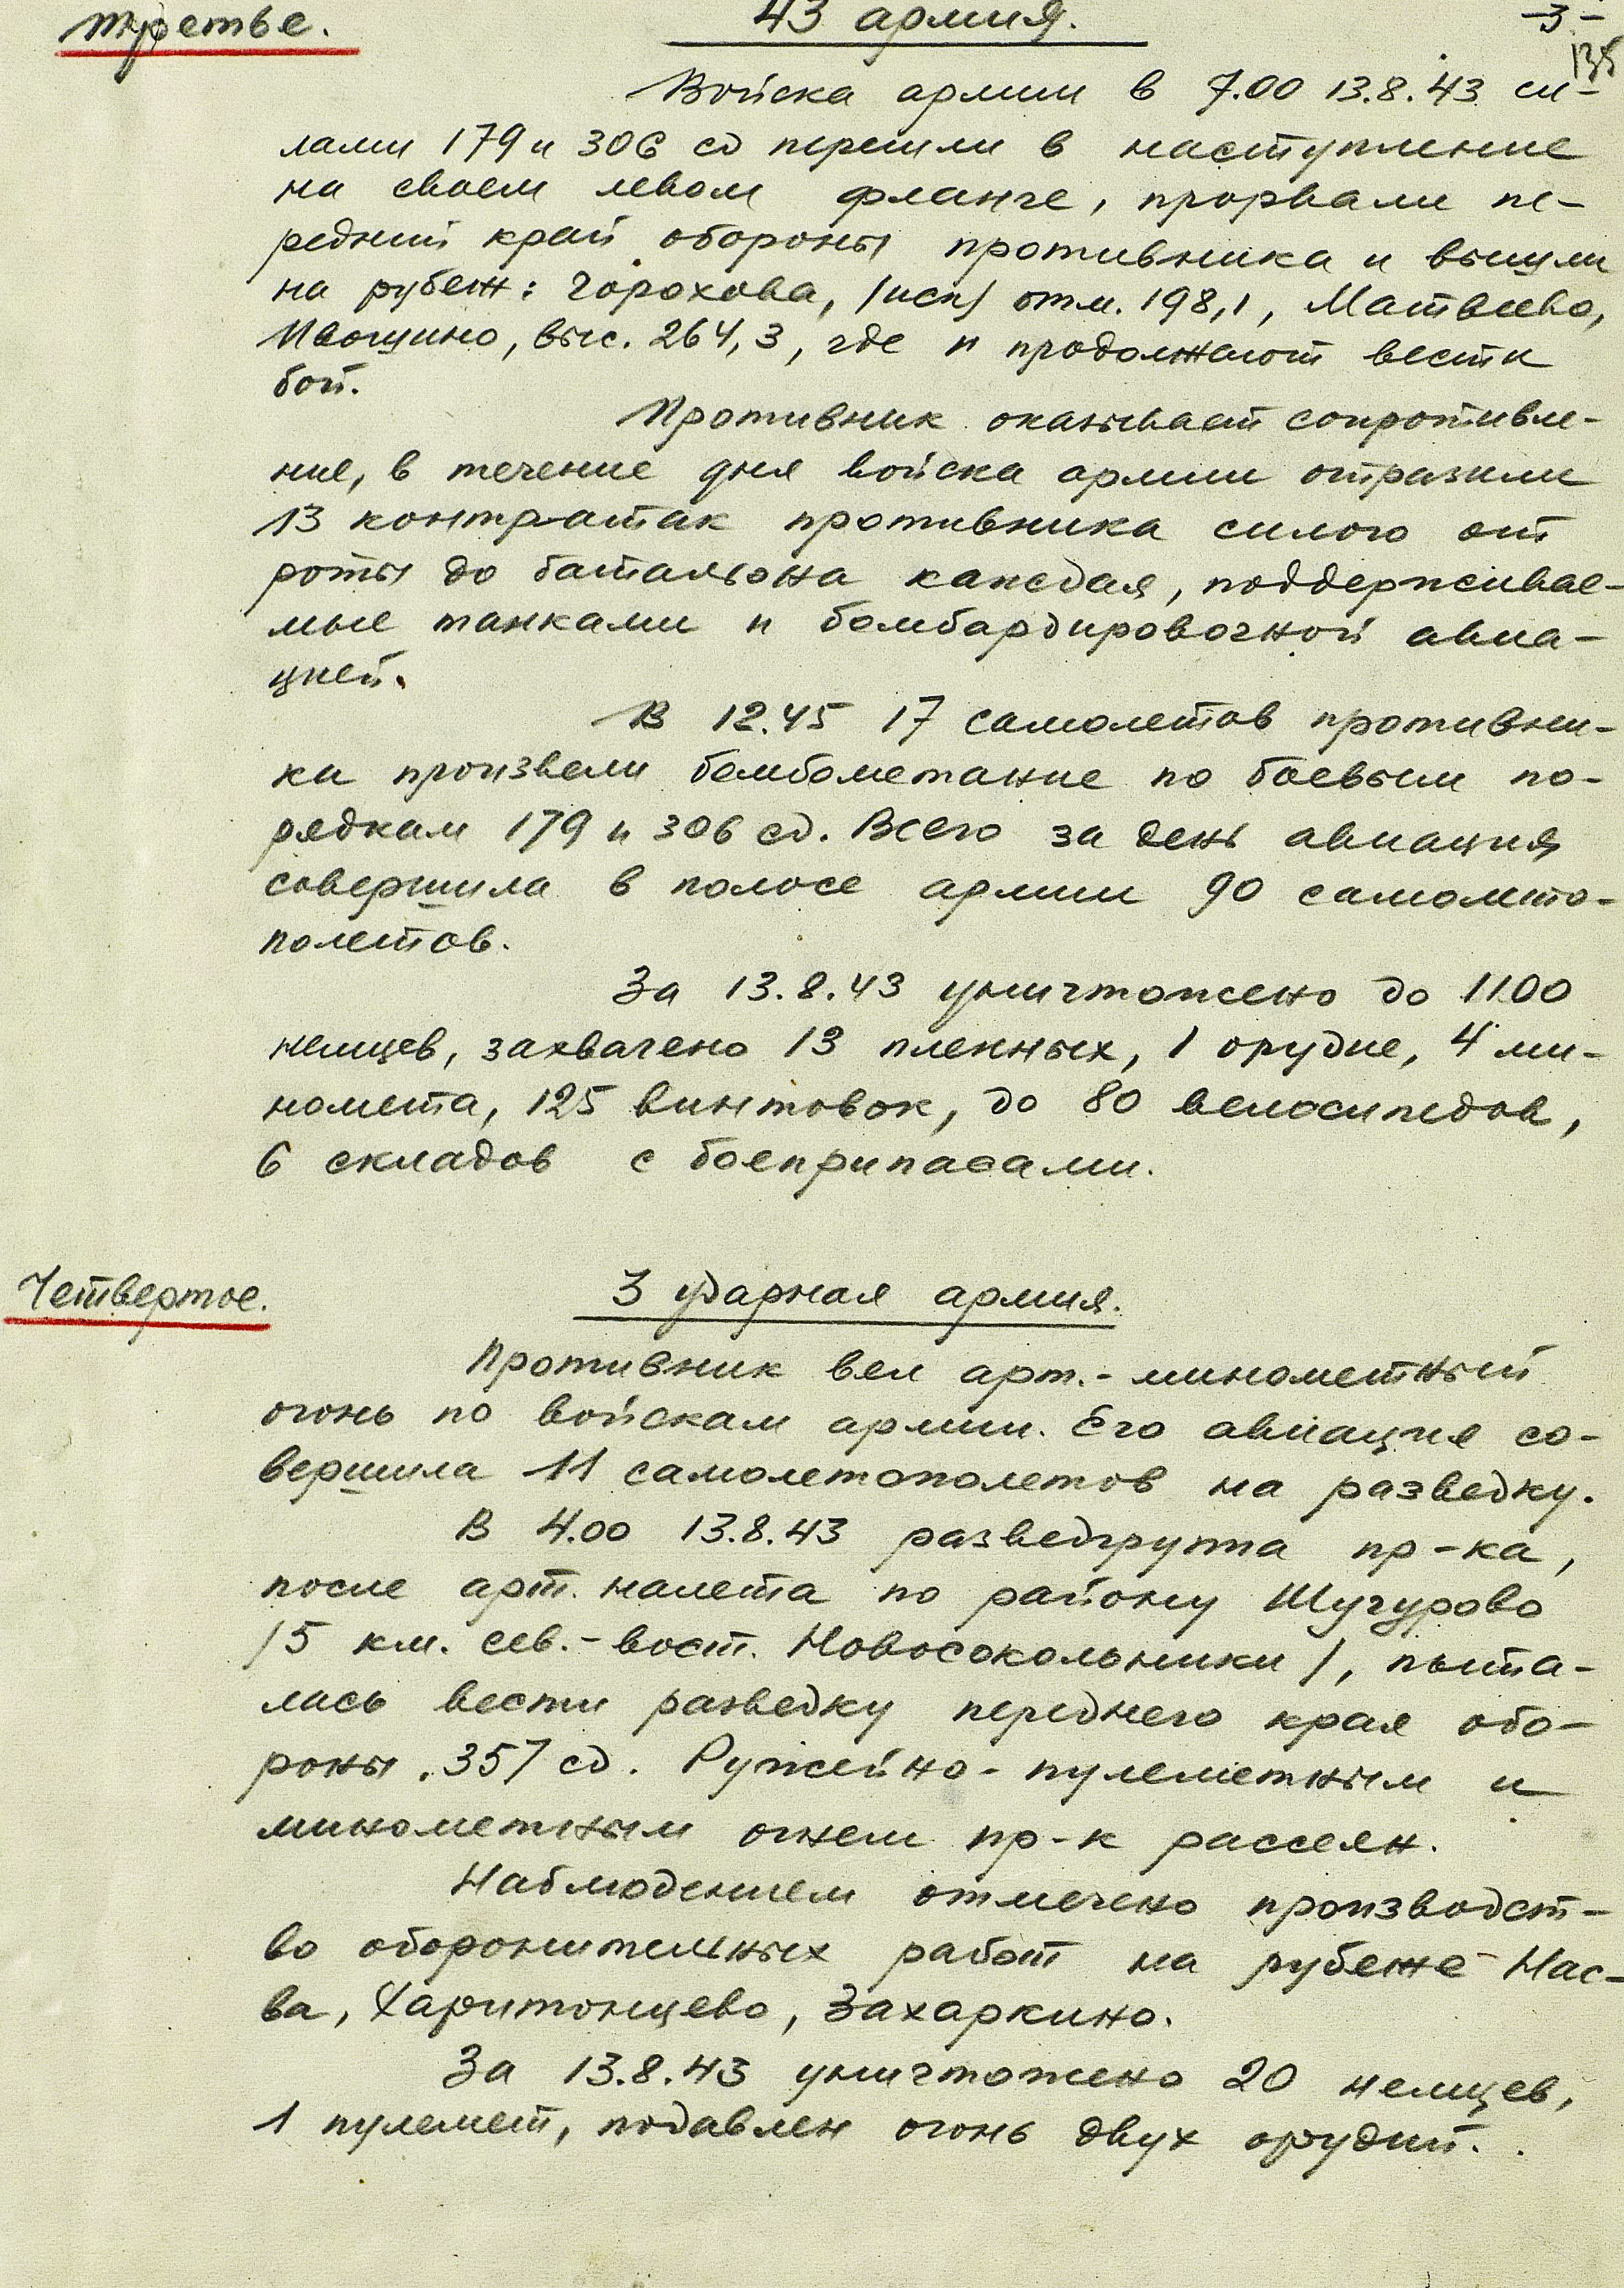 Третье.
43 армия.
-3-
Войска армии в 7.00 13.8.43 си-
лами 179 и 306 сд перешли в наступление
на своем левом фланге, прорвали пе-
редний край обороны противника и вышли
на рубеж: Горохова, /иск/ отм. 198,1, Матвеево,
Ивощино, выс. 264,3, где и продолжают вести
бой.
Противник оказывает сопротивле-
ние, в течение дня войска армии отразили
13 контратак противника силою от
роты до батальона каждая, поддерживае-
мые танками и бомбардировочной авиа-
цией.
В 12.45 17 самолетов противни-
ка произвели бомбометание по боевым по-
рядкам 179 и 306 сд. Всего за день авиация
совершила в полосе армии 90 самолето-
полетов.
За 13.8.43 уничтожено до 1100
немцев, захвачено 13 пленных, 1 орудие, 4 ми-
номета, 125 винтовок, до 80 велосипедов,
6 складов с боеприпасами.
Четвертое.
3 ударная армия.
Противник вел арт.-минометный
огонь по войскам армии. Его авиация со-
вершила 11 самолетополетов на разведку.
В 4.00 13.8.43 разведгруппа пр-ка,
после арт. налета по району Шучурово
/5 км. сев.-вост. Новосокольники/, пыта-
лась вести разведку переднего края обо-
роны 357 сд. Ружейно-пулеметным и
минометным огнем пр-к рассеян.
Наблюдением отмечено производст-
во оборонительных работ на рубеже Нас-
ва, Харитонцево, Захаркино.
За 13.8.43 уничтожено 20 немцев,
1 пулемет, подавлен огонь двух орудий.